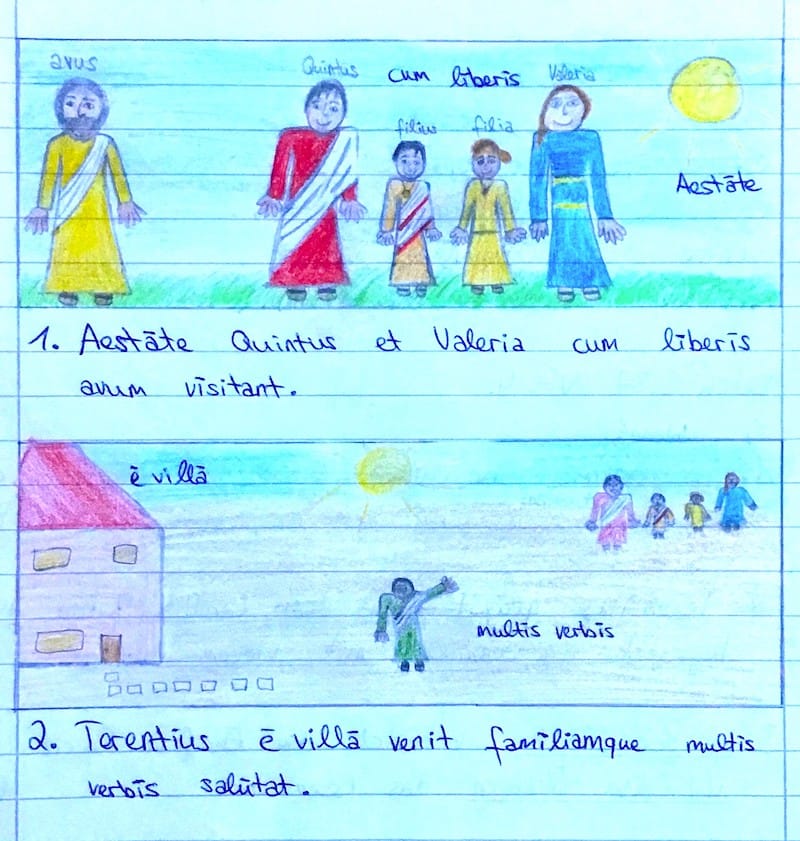 avus
Quintus cum līberīs Valeria
filius filia
Aestāte
1. Aestāte Quintus et Valeria cum līberīs
avum vīsitant.
ē vīllā
multīs verbīs
2. Terentius ē vīllā venit famīliamque multīs
verbīs salūtat.